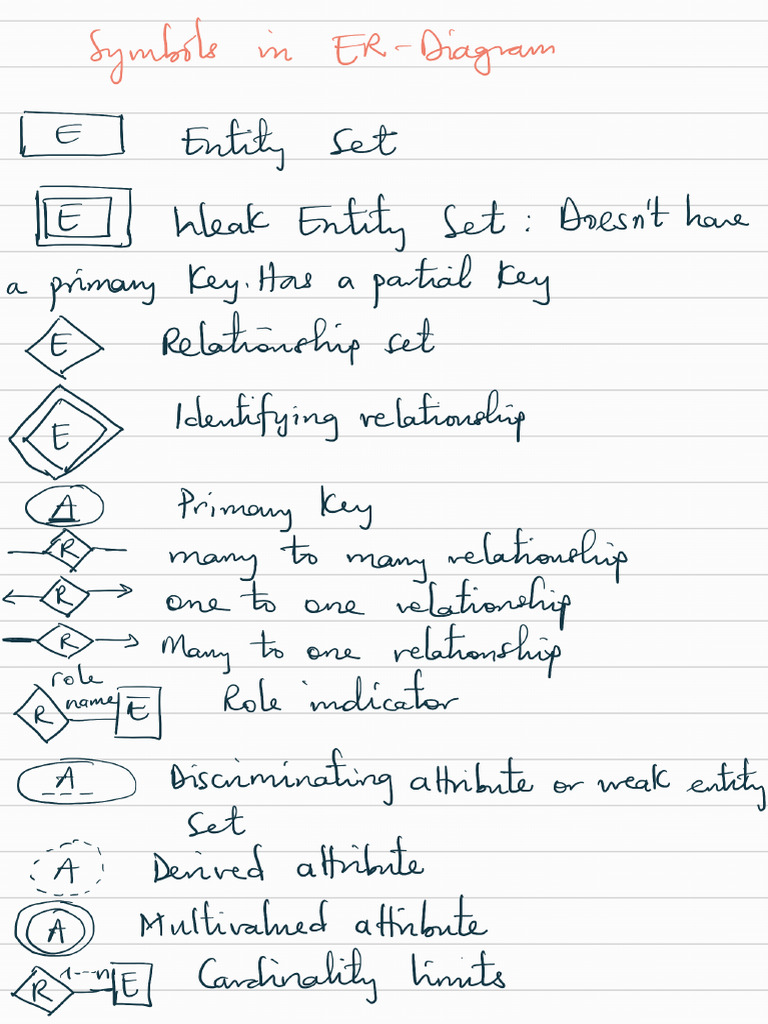 Symbols in ER-Diagram
E Entity Set
E Weak Entity Set : Doesn't have
a primary key. Has a partial key
E Relationship set
E Identifying relationship
A Primary key
R many to many relationship
R one to one relationship
R Many to one relationship
role
R name E Role indicator
A Discriminating attribute or weak entity
Set
A Derived attribute
A Multivalued attribute
R 1---n E Cardinality limits